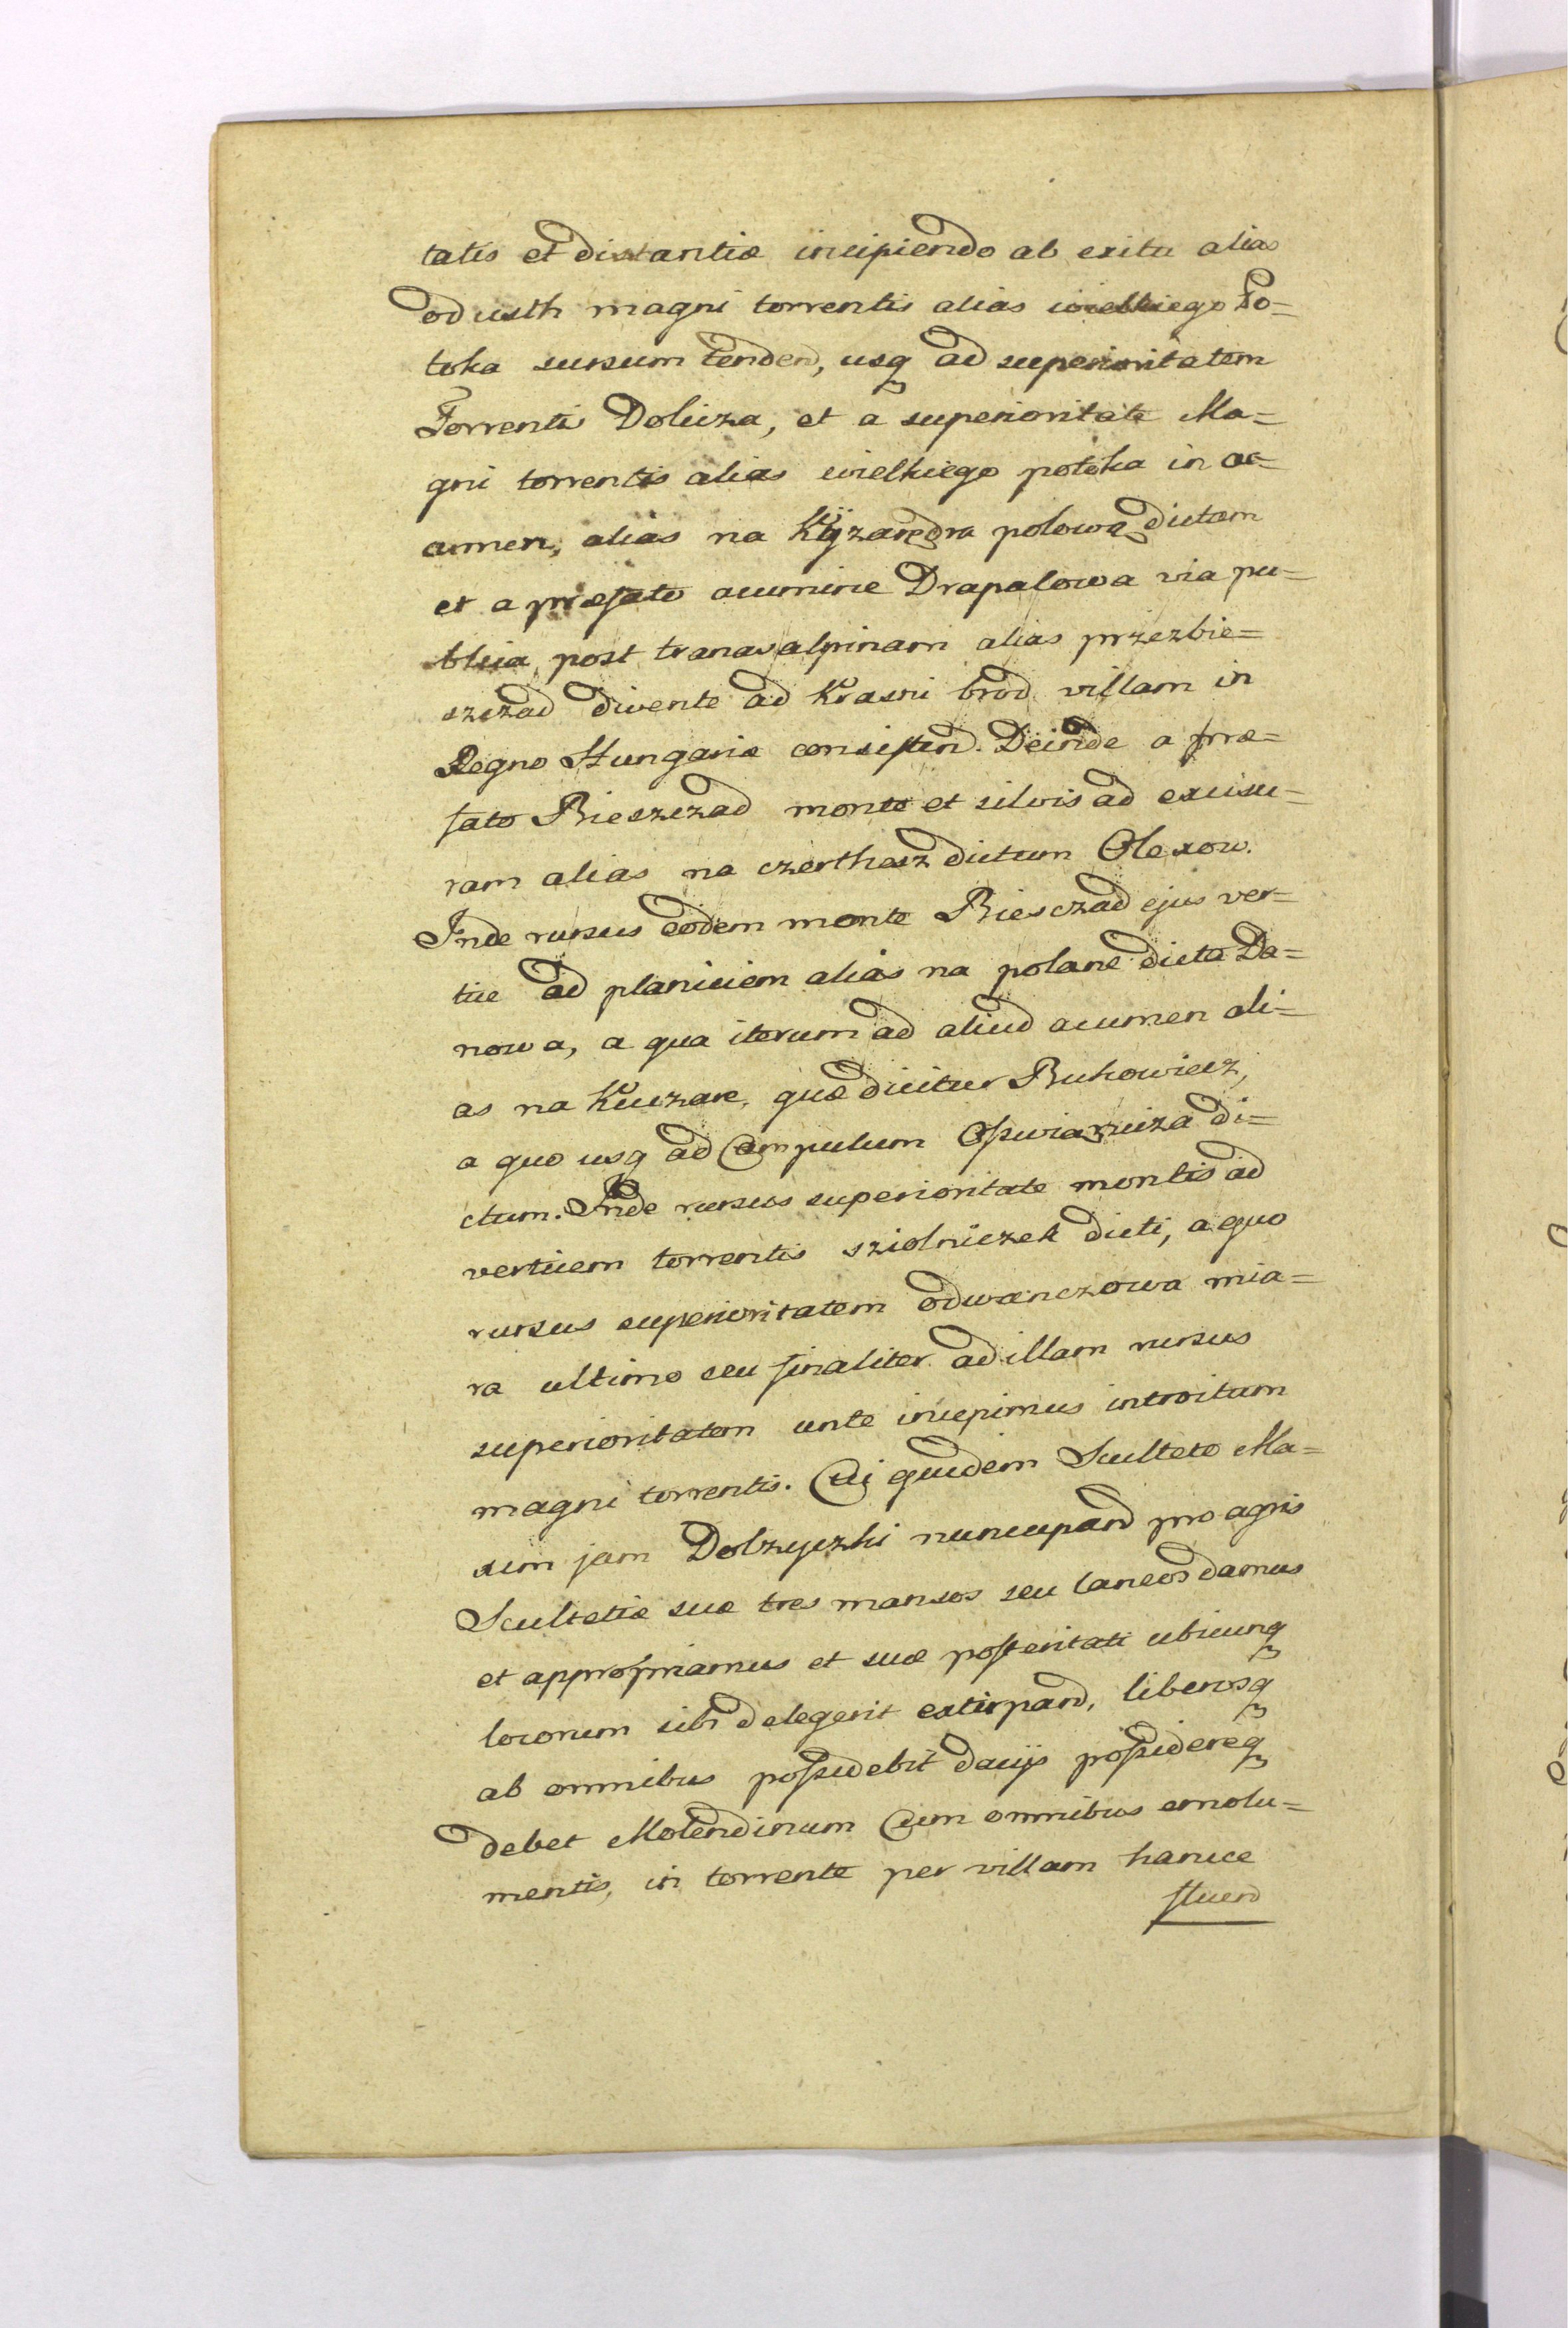 talis et distantiæ incipiendo ab exitu alias
od usth magni torrentis alias wielkiego Po=
toka sursum tendend, usq ad superioritatem
Torrentis Dolicza, et a superioritate Ma=
gni torrentis alias wielkiego potoka in ac=
cumen, alias na Kÿzaredra polowa dictam
et a præfato acumine Drapalowa via pu=
blica, post transalpinam alias przezbie=
szczad divente ad Krasni brod villam in
Regno Hungariæ consisten. Deinde a præ=
fato Bieszczad monte et silvis ad excisu=
ram alias na czerthesz dictum Olexow.
Inde rursus eodem monte Biesczad ejus ver=
tice ad planiciem alias na polane dicta Da=
nowa, a qua iterum ad aliud acumen ali=
as na Kiczare, quæ dicitur Bukowiecz,
a quo usq ad Campulum Oswianicza di=
ctum. Inde rursus superioritate montis ad
verticem torrentis sziolniczek dicti, a quo
rursus superioritatem odwanczowa mia=
ra ultimo seu finaliter ad illam rursus
superioritatem unte incepimus introitum
magni torrentis. Cui quidem Sculteto Ma=
xim jam Dolzyczki nuncupand pro agris
Scultetiæ suæ tres mansos seu laneos damus
et appropriamus et suæ posteritati ubicunq
locorum sibi delegerit extirpand, liberosq
ab omnibus possidebit dacijs possidereq
debet Molendinum Cum omnibus emolu=
mentis, in torrente per villam hancce
fluend